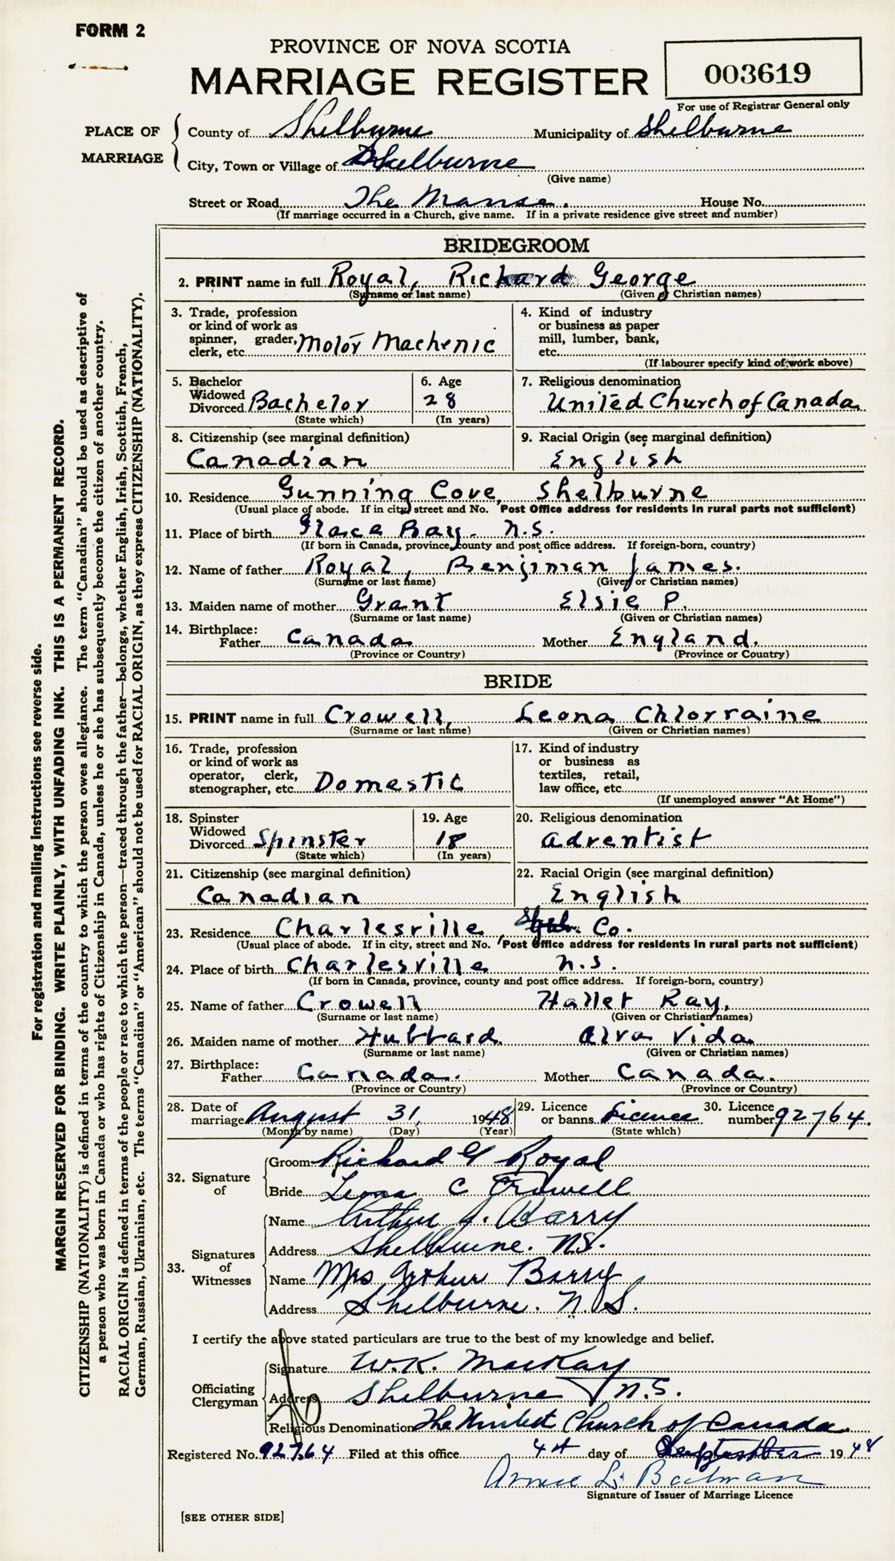 FORM 2
PROVINCE OF NOVA SCOTIA
MARRIAGE REGISTER
003619
For use of Registrar General only
PLACE OF MARRIAGE
County of Shelburne Municipality of Shelburne
City, Town or Village of Shelburne
(Give name)
Street or Road The Manse. House No.
(If marriage occurred in a Church, give name. If in a private residence give street and number)
BRIDEGROOM
2. PRINT name in full Royal, Richard George
(Surname or last name) (Given or Christian names)
3. Trade, profession or kind of work as spinner, grader, clerk, etc. Motor Machenic
4. Kind of industry or business as paper mill, lumber, bank, etc.
(If labourer specify kind of work above)
5. Bachelor Widowed Divorced Bachelor
(State which)
6. Age 28
(In years)
7. Religious denomination
United Church of Canada
8. Citizenship (see marginal definition)
Canadian
9. Racial Origin (see marginal definition)
English
10. Residence Gunning Cove, Shelburne
(Usual place of abode. If in city street and No. Post Office address for residents in rural parts not sufficient)
11. Place of birth Glace Bay. N.S.
(If born in Canada, province, county and post office address. If foreign-born, country)
12. Name of father Royal, Benjiman James.
(Surname or last name) (Given or Christian names)
13. Maiden name of mother Grant Elsie P.
(Surname or last name) (Given or Christian names)
14. Birthplace: Father Canada Mother England.
(Province or Country) (Province or Country)
BRIDE
15. PRINT name in full Crowell, Leona Chlorraine
(Surname or last name) (Given or Christian names)
16. Trade, profession or kind of work as operator, clerk, stenographer, etc. Domestic
17. Kind of industry or business as textiles, retail, law office, etc.
(If unemployed answer "At Home")
18. Spinster Widowed Divorced Spinster
(State which)
19. Age 18
(In years)
20. Religious denomination
Adventist
21. Citizenship (see marginal definition)
Canadian
22. Racial Origin (see marginal definition)
English
23. Residence Charlesville, Co.
(Usual place of abode. If in city, street and No. Post Office address for residents in rural parts not sufficient)
24. Place of birth Charlesville N.S.
(If born in Canada, province, county and post office address. If foreign-born, country)
25. Name of father Crowell Hallet Ray,
(Surname or last name) (Given or Christian names)
26. Maiden name of mother Hubbard Alva Vida
(Surname or last name) (Given or Christian names)
27. Birthplace: Father Canada. Mother Canada.
(Province or Country) (Province or Country)
28. Date of marriage August 31, 1948
(Month by name) (Day) (Year)
29. Licence or banns Licence
(State which)
30. Licence number 92764.
32. Signature of
Groom Richard G Royal
Bride Leona C Crowell
33. Signatures of Witnesses
Name Arthur J. Barry
Address Shelburne. N.S.
Name Mrs Arthur Barry
Address Shelburne. N.S.
I certify the above stated particulars are true to the best of my knowledge and belief.
Officiating Clergyman
Signature W.K. MacKay
Address Shelburne N.S.
Religious Denomination The United Church of Canada
Registered No. 92764 Filed at this office 4th day of September 1948
Annie L. Boatman
Signature of Issuer of Marriage Licence
[SEE OTHER SIDE]
For registration and mailing instructions see reverse side.
MARGIN RESERVED FOR BINDING. WRITE PLAINLY, WITH UNFADING INK. THIS IS A PERMANENT RECORD.
CITIZENSHIP (NATIONALITY) is defined in terms of the country to which the person owes allegiance. The term "Canadian" should be used as descriptive of
a person who was born in Canada or who has rights of Citizenship in Canada, unless he or she has subsequently become the citizen of another country.
RACIAL ORIGIN is defined in terms of the people or race to which the person—traced through the father—belongs, whether English, Irish, Scottish, French,
German, Russian, Ukrainian, etc. The terms "Canadian" or "American" should not be used for RACIAL ORIGIN, as they express CITIZENSHIP (NATIONALITY).